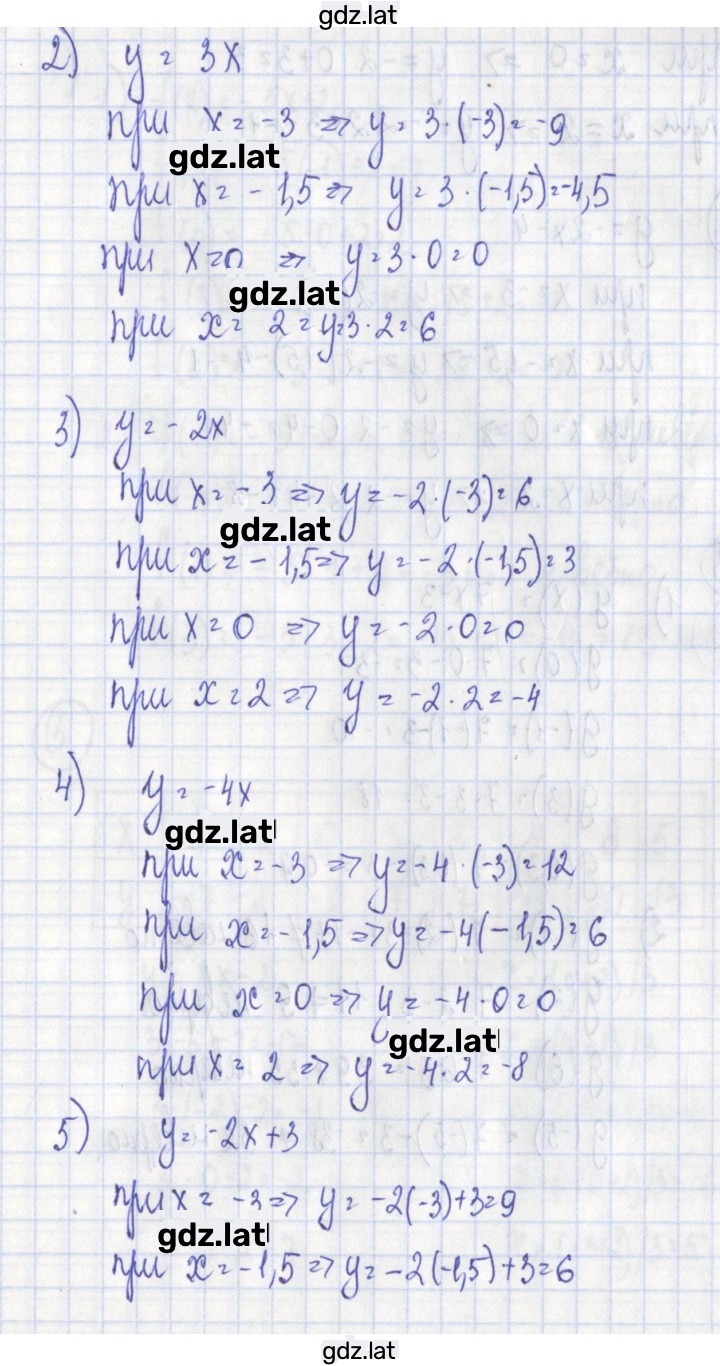 gdz.lat
2) y = 3x
при x = -3 => y = 3·(-3) = -9
gdz.lat
при x = -1,5 => y = 3·(-1,5) = -4,5
при x = 0 => y = 3·0 = 0
gdz.lat
при x = 2 = y = 3·2 = 6
3) y = -2x
при x = -3 => y = -2·(-3) = 6
gdz.lat
при x = -1,5 => y = -2·(-1,5) = 3
при x = 0 => y = -2·0 = 0
при x = 2 => y = -2·2 = -4
4) y = -4x
gdz.lat
при x = -3 => y = -4·(-3) = 12
при x = -1,5 => y = -4(-1,5) = 6
при x = 0 => y = -4·0 = 0
gdz.lat
при x = 2 => y = -4·2 = -8
5) y = -2x+3
при x = -3 => y = -2(-3)+3=9
gdz.lat
при x = -1,5 => y = -2(-1,5)+3=6
gdz.lat